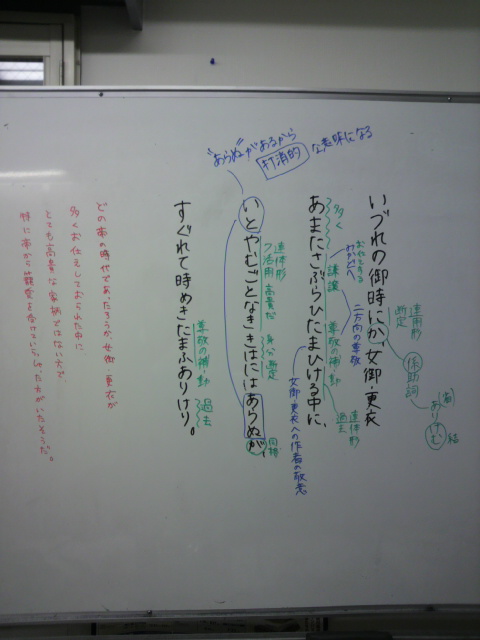 "あらぬ"があるから
打消的な意味になる
いづれの御時にか、女御・更衣
連用形
断定
係助詞
(省)
ありけむ
結
多く
お仕えする
謙譲
二方向の尊敬
あまたさぶらひたまひける中に、
尊敬の補・動
連体形
過去
女御更衣への作者の敬意
いとやむごとなききはにはあらぬが、
連体形
ク活用 高貴だ
身分
断定
同格
すぐれて時めきたまふありけり。
尊敬の補・動
過去
どの帝の時代であったろうか女御・更衣が
多くお仕えしておられた中に
とても高貴な家柄ではない方で
特に帝から寵愛を受けていらっしゃった方がいたそうだ。